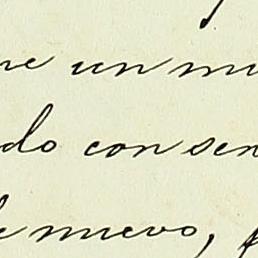 ne un mu
do con sen
de nuevo, p